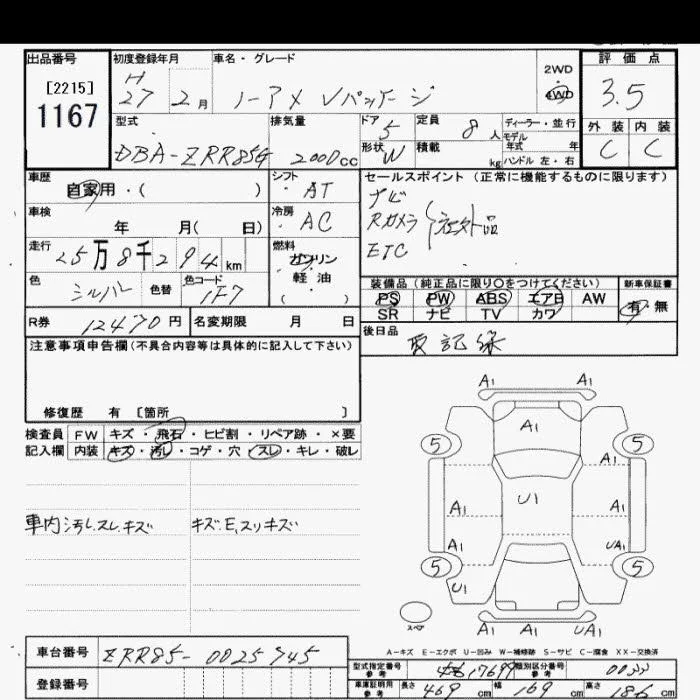 出品番号
[2215]
1167
初度登録年月
H
27 2月
車名・グレード
ノーアX Vパッケージ
2WD
4WD
評価点
3.5
外装 内装
C C
型式
DBA-ZRR85G
排気量
2000cc
ドア
5
形状
W
定員
8人
積載
kg
ディーラー・並行
モデル
年式 年
ハンドル 左・右
車歴
自家用・( )
シフト
AT
セールスポイント (正常に機能するものに限ります)
ナビ
Rカメラ
ETC
社外品
車検
年 月( 日)
冷房
AC
走行
25万8千294km
燃料
ガソリン
・
軽油
( )
色
シルバー
色替
色コード
1F7
装備品 (純正品に限り○をつけてください)
PS PW ABS エアB AW
SR ナビ TV カワ
新車保証書
有・無
R券 12470円
名変期限 月 日
後日品
取 記録
注意事項申告欄(不具合内容等は具体的に記入して下さい)
修復歴 有 〔箇所 〕
検査員
記入欄
FW キズ・飛石・ヒビ割・リペア跡・×要
内装 キズ・汚し・コゲ・穴・スレ・キレ・破レ
車内汚し.スレ.キズ
キズ.E.スリキズ
A1 A1
A1
5 5
A1
U1
A1 A1
A1 UA1
5 5
U1
スペア
A1 A1 UA1
A-キズ E-エクボ U-凹み W-補修跡 S-サビ C-腐食 XX-交換済
車台番号
ZRR85-0025945
登録番号
型式指定番号
参考
類別区分番号
参考
車庫証明用
参考
長さ 469 cm
幅 169 cm
高さ 186 cm